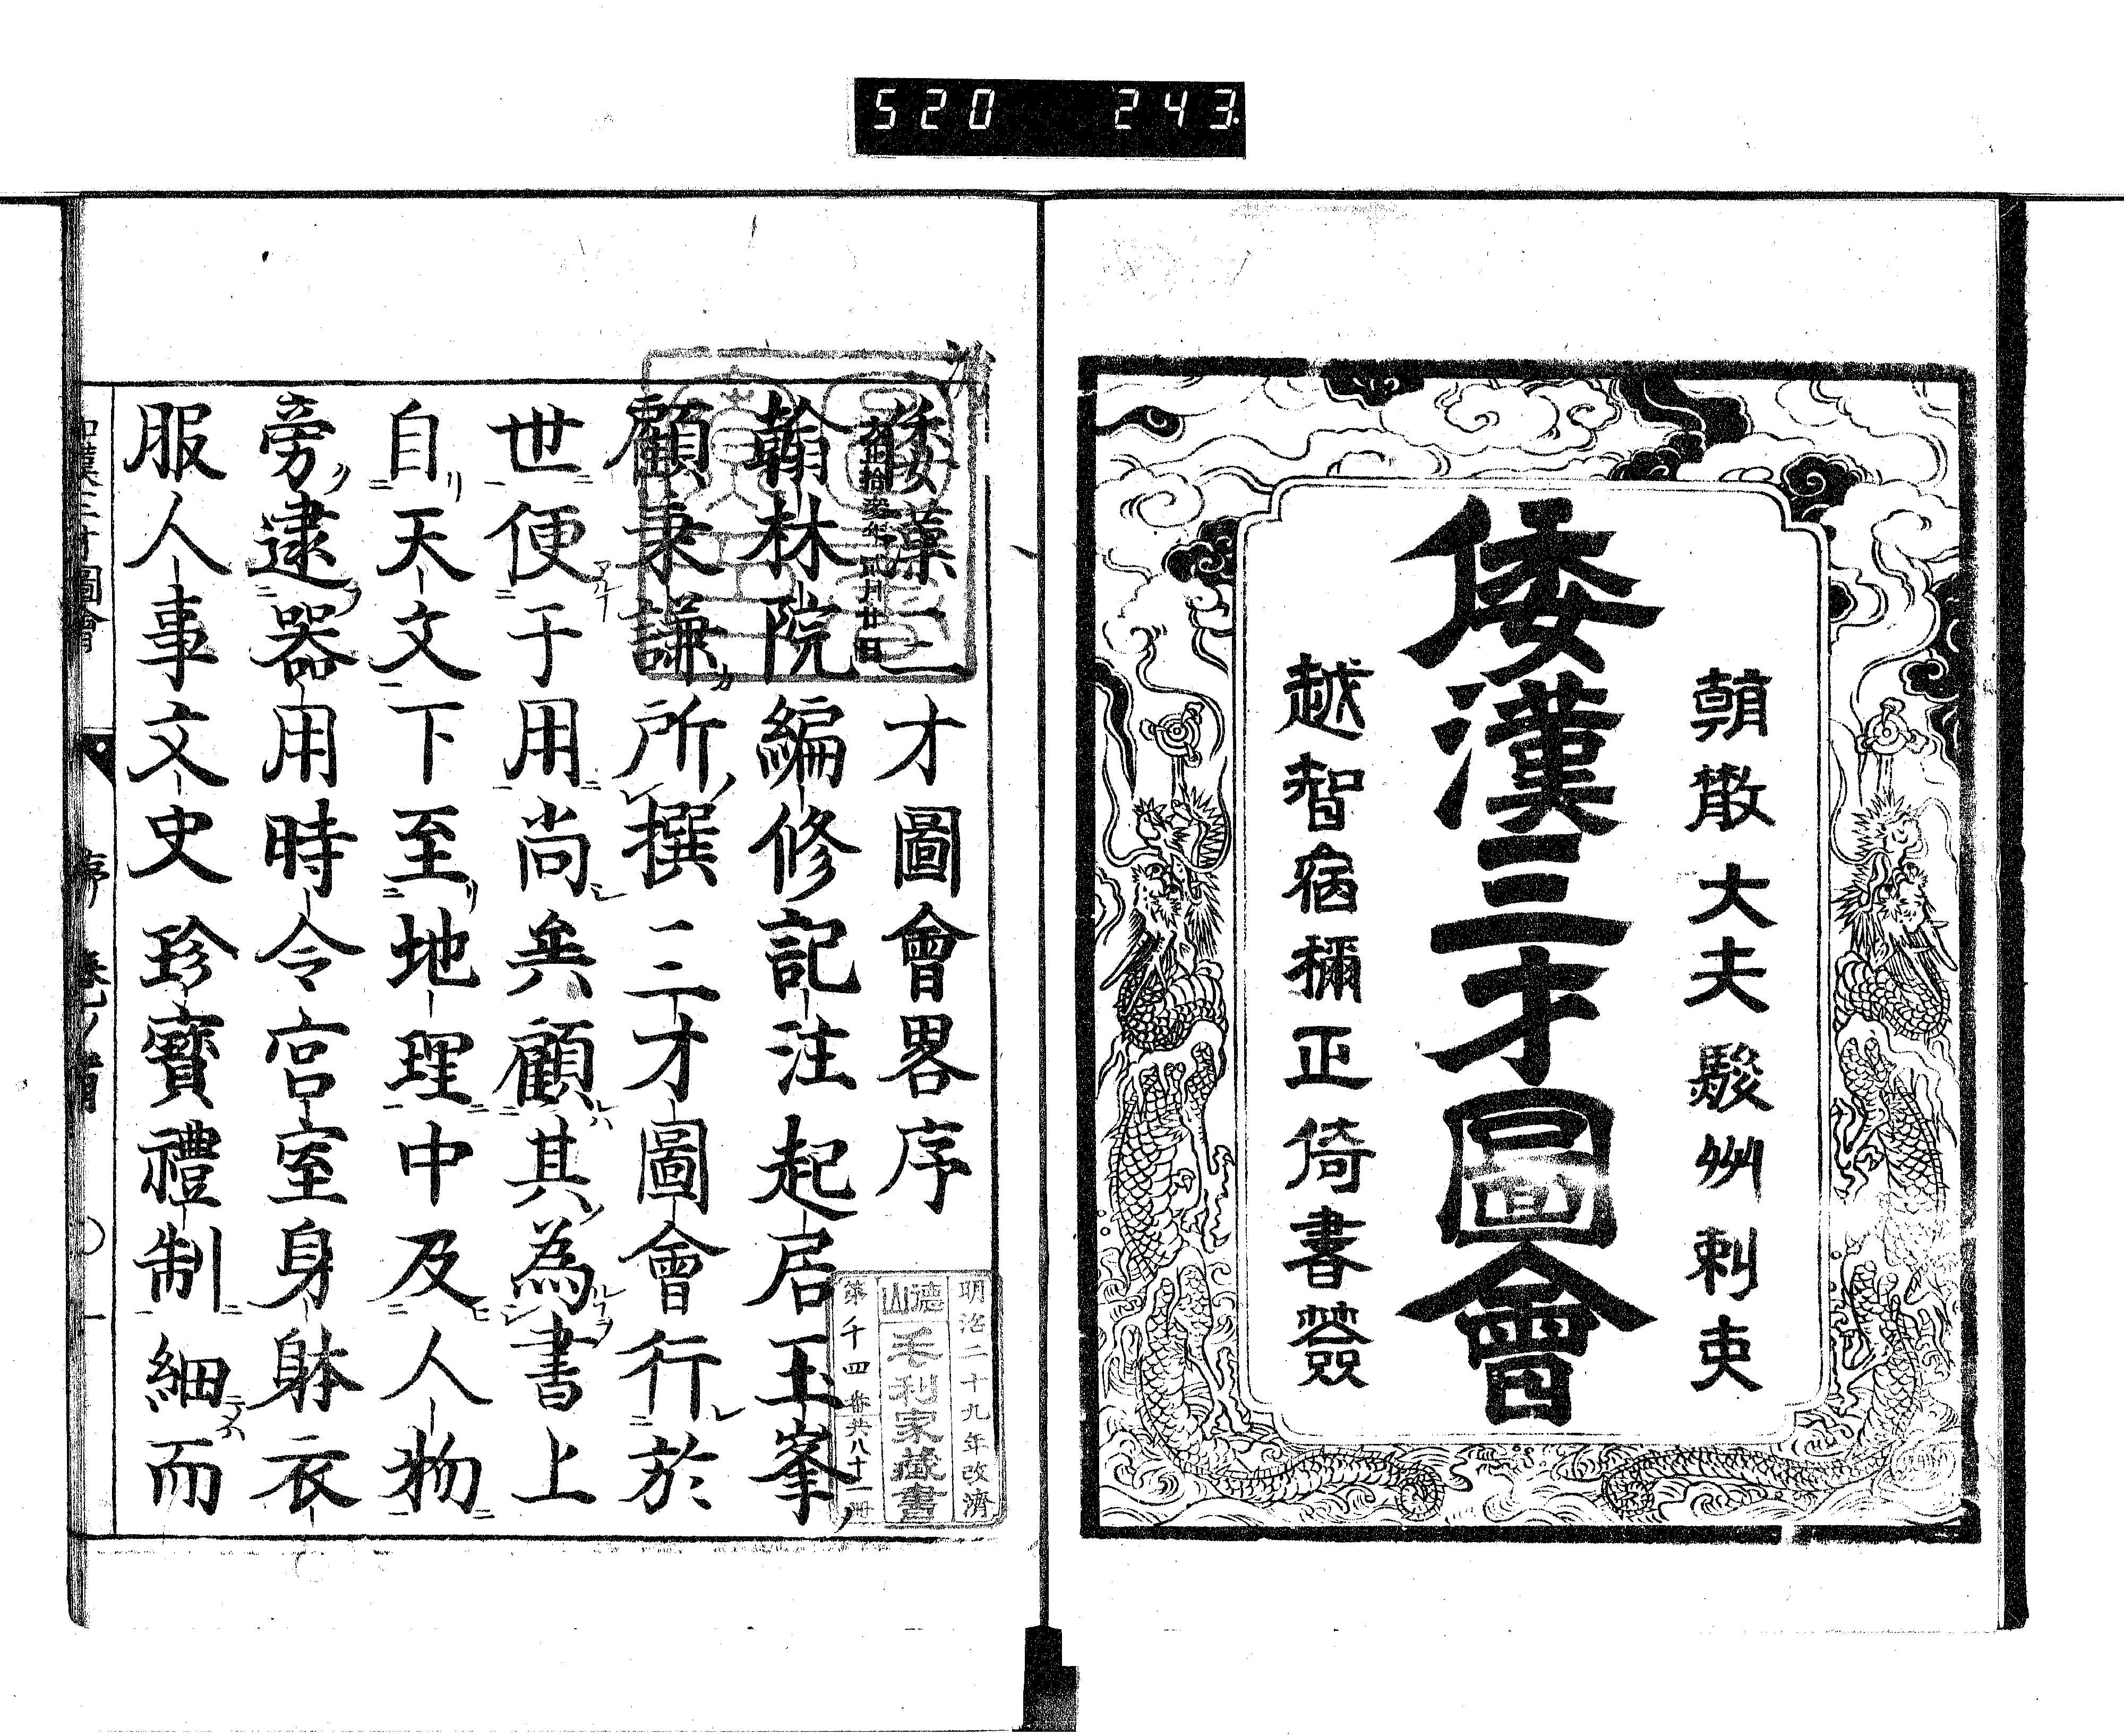 520 243
朝散大夫駿州刺吏
倭漢三才圖會
越智宿禰正倚書簽
倭漢三才圖會畧序
翰林院編修記注起居玉峯ノ
顧秉謙所撰三才圖會行於
世便于用尚矣顧其為書上
自天文下至地理中及人物
旁逮器用時令宮室身躰衣
服人事文史珍寶禮制細而
明治二十九年改濟
德山
毛利家藏書
第千四番共八十一冊
序